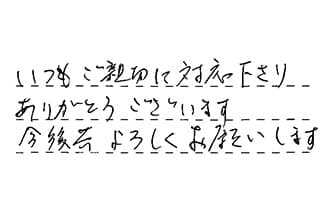 いつもご親切に対応下さり
ありがとうございます
今後共よろしくお願いします